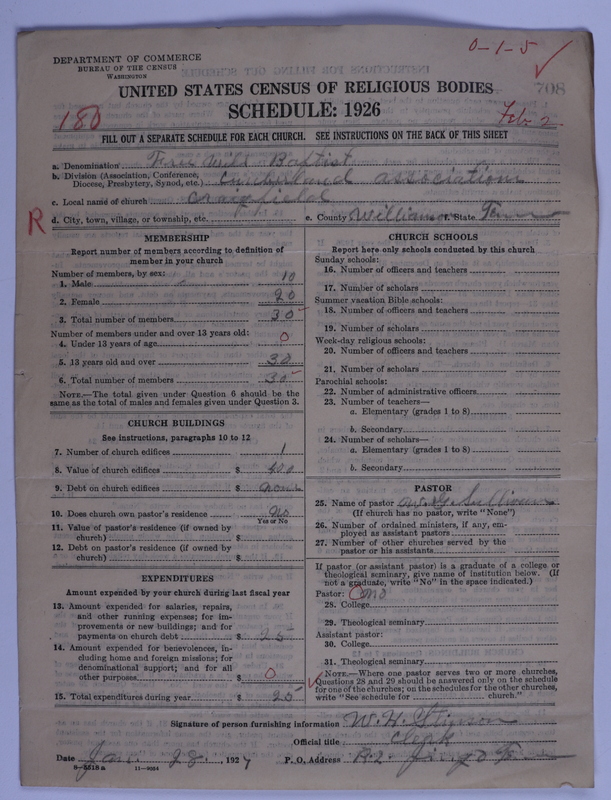 0-1-5
DEPARTMENT OF COMMERCE
BUREAU OF THE CENSUS
WASHINGTON
UNITED STATES CENSUS OF RELIGIOUS BODIES
708
SCHEDULE: 1926
180
Feb 2
FILL OUT A SEPARATE SCHEDULE FOR EACH CHURCH. SEE INSTRUCTIONS ON THE BACK OF THIS SHEET
a. Denomination Free Will Baptist
b. Division (Association, Conference,
Diocese, Presbytery, Synod, etc.) Cumberland association
c. Local name of church Craigfield
R
d. City, town, village, or township, etc. e. County Williamson f. State Tenn
MEMBERSHIP
Report number of members according to definition of
member in your church
Number of members, by sex:
1. Male 10
2. Female 20
3. Total number of members 30
Number of members under and over 13 years old:
4. Under 13 years of age 0
5. 13 years old and over 30
6. Total number of members 30
NOTE.—The total given under Question 6 should be
same as the total of males and females given under Question 3.
CHURCH BUILDINGS
See instructions, paragraphs 10 to 12
7. Number of church edifices 1
8. Value of church edifices $ 400
9. Debt on church edifices $ none
10. Does church own pastor's residence no
Yes or No
11. Value of pastor's residence (if owned by
church) $
12. Debt on pastor's residence (if owned by
church) $
EXPENDITURES
Amount expended by your church during last fiscal year
13. Amount expended for salaries, repairs,
and other running expenses; for im-
provements or new buildings; and for
payments on church debt $ 25
14. Amount expended for benevolences, in-
cluding home and foreign missions; for
denominational support; and for all
other purposes $ 0
15. Total expenditures during year $ 25
CHURCH SCHOOLS
Report here only schools conducted by this church
Sunday schools:
16. Number of officers and teachers
17. Number of scholars
Summer vacation Bible schools:
18. Number of officers and teachers
19. Number of scholars
Week-day religious schools:
20. Number of officers and teachers
21. Number of scholars
Parochial schools:
22. Number of administrative officers
23. Number of teachers—
a. Elementary (grades 1 to 8)
b. Secondary
24. Number of scholars—
a. Elementary (grades 1 to 8)
b. Secondary
PASTOR
25. Name of pastor Sullivan
(If church has no pastor, write "None")
26. Number of ordained ministers, if any, em-
ployed as assistant pastors
27. Number of other churches served by the
pastor or his assistants
If pastor (or assistant pastor) is a graduate of a college or
theological seminary, give name of institution below. (If
not a graduate, write "No" in the space indicated.)
Pastor: no
28. College
29. Theological seminary
Assistant pastor:
30. College
31. Theological seminary
NOTE.—Where one pastor serves two or more churches,
Questions 28 and 29 should be answered only on the schedule
for one of the churches; on the schedules for the other churches,
write "See schedule for church."
Signature of person furnishing information W. H. Stinson
Official title Clerk
Date Jan. 28, 1927 P. O. Address R-2
8-2518a 11-8024